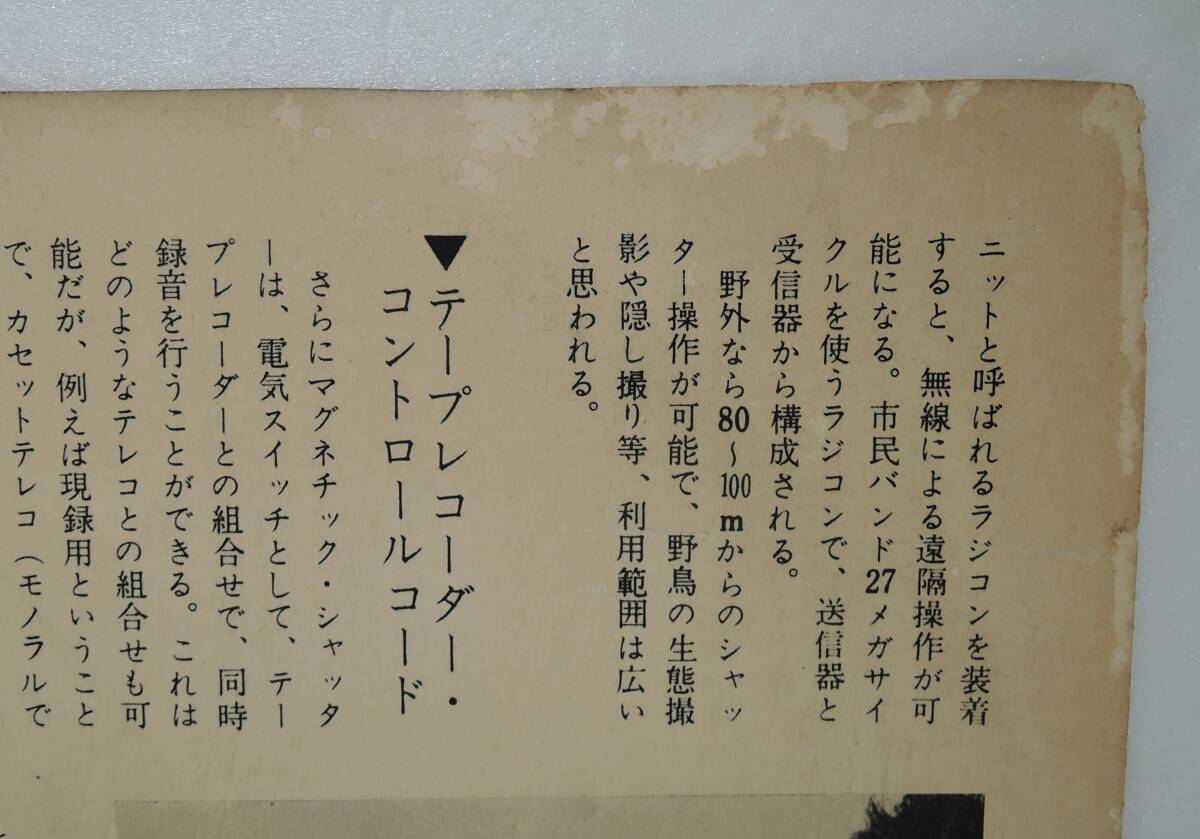 ニットと呼ばれるラジコンを装着
すると、無線による遠隔操作が可
能になる。市民バンド27メガサイ
クルを使うラジコンで、送信器と
受信器から構成される。
野外なら80〜100mからのシャッ
ター操作が可能で、野鳥の生態撮
影や隠し撮り等、利用範囲は広い
と思われる。
▼テープレコーダー・
コントロールコード
さらにマグネチック・シャッタ
ーは、電気スイッチとして、テー
プレコーダーとの組合せで、同時
録音を行うことができる。これは
どのようなテレコとの組合せも可
能だが、例えば現録用ということ
で、カセットテレコ（モノラルで